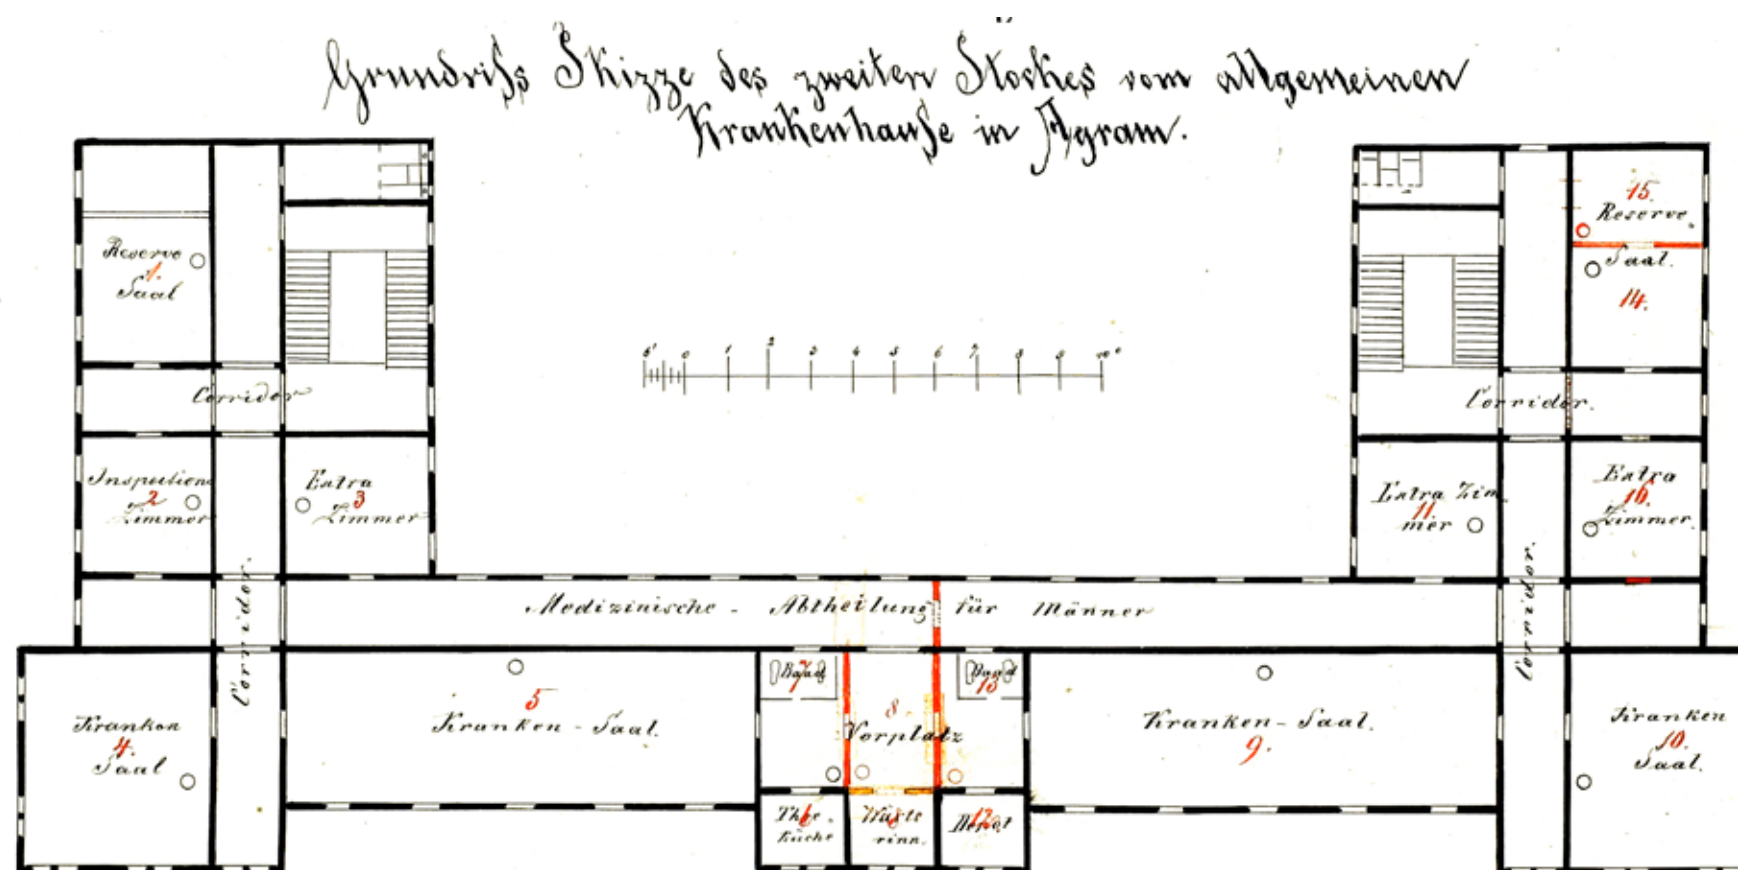 Grundriss Skizze des zweiten Stockes vom allgemeinen
Krankenhause in Agram.
Reserve
1.
Saal
Corridor
Inspections
2
Zimmer
Extra
3
Zimmer
Corridor.
Kranken
4.
Saal
5
Kranken - Saal.
6' 0 1 2 3 4 5 6 7 8 9 10°
Medizinische - Abtheilung für Männer
Baad
7
8
Vorplatz
Baad
13
Thee-
6
Küche
Wärte
8
rinn.
Depot
12
Kranken - Saal.
9.
15.
Reserve
Saal.
14.
Corridor.
Extra Zim
11
mer
Extra
16.
Zimmer.
Corridor.
Kranken
10.
Saal.